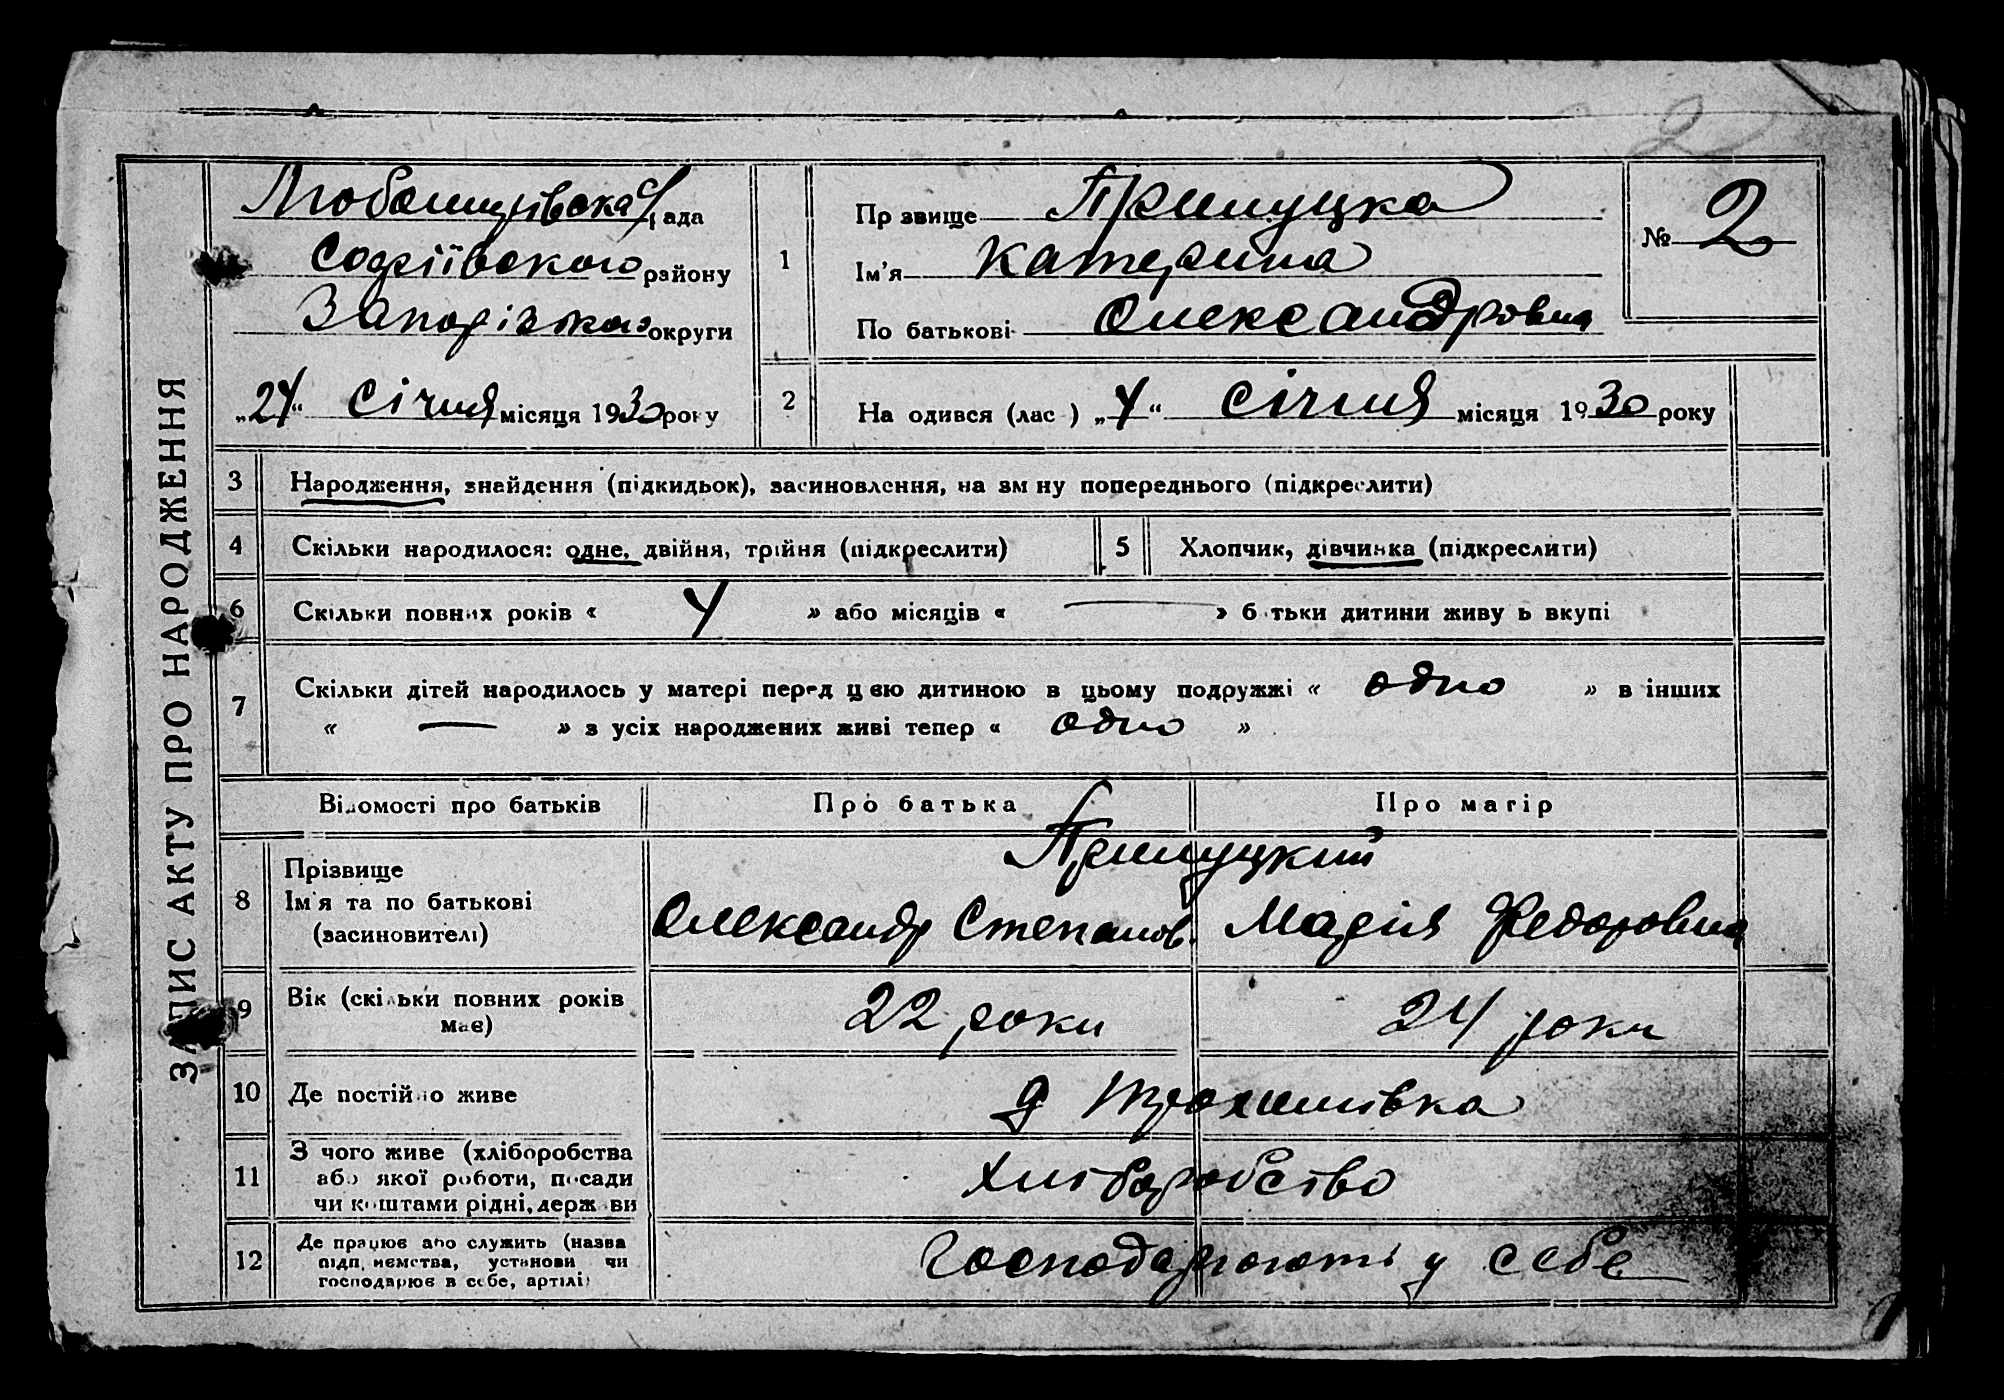 2
ЗАПИС АКТУ ПРО НАРОДЖЕННЯ
Любомирівська с/рада
Софіївського району
Запорізької округи
„24“ Січня місяця 1930 року
1
Пр звище Прилуцка
Ім’я Катерина
По батькові Олександровна
№ 2
2
На одився (лас ) „4“ Січня місяця 1930 року
3 Народження, знайдення (підкидьок), засиновлення, на зм ну попереднього (підкреслити)
4 Скільки народилося: одне, двійня, трійня (підкреслити)
5 Хлопчик, дівчинка (підкреслити)
6 Скільки повних років « 4 » або місяців « — » б тьки дитини живу ь вкупі
7 Скільки дітей народилось у матері перед цею дитиною в цьому подружжі « одно » в інших
« — » з усіх народжених живі тепер « одно »
Відомості про батьків Про батька Про матір
8 Прізвище
Ім’я та по батькові
(засиновителі)
Прилуцкий
Олександр Степанов. Марія Федоровна
9 Вік (скільки повних років
має)
22 роки 24 роки
10 Де постійно живе
Трохимівка
11 З чого живе (хліборобства
або якої роботи, посади
чи коштами рідні, держави
хліборобство
12 Де працює або служить (назва
підп. иємства, установи чи
господарює в себе, артілі)
Господарюють у себе